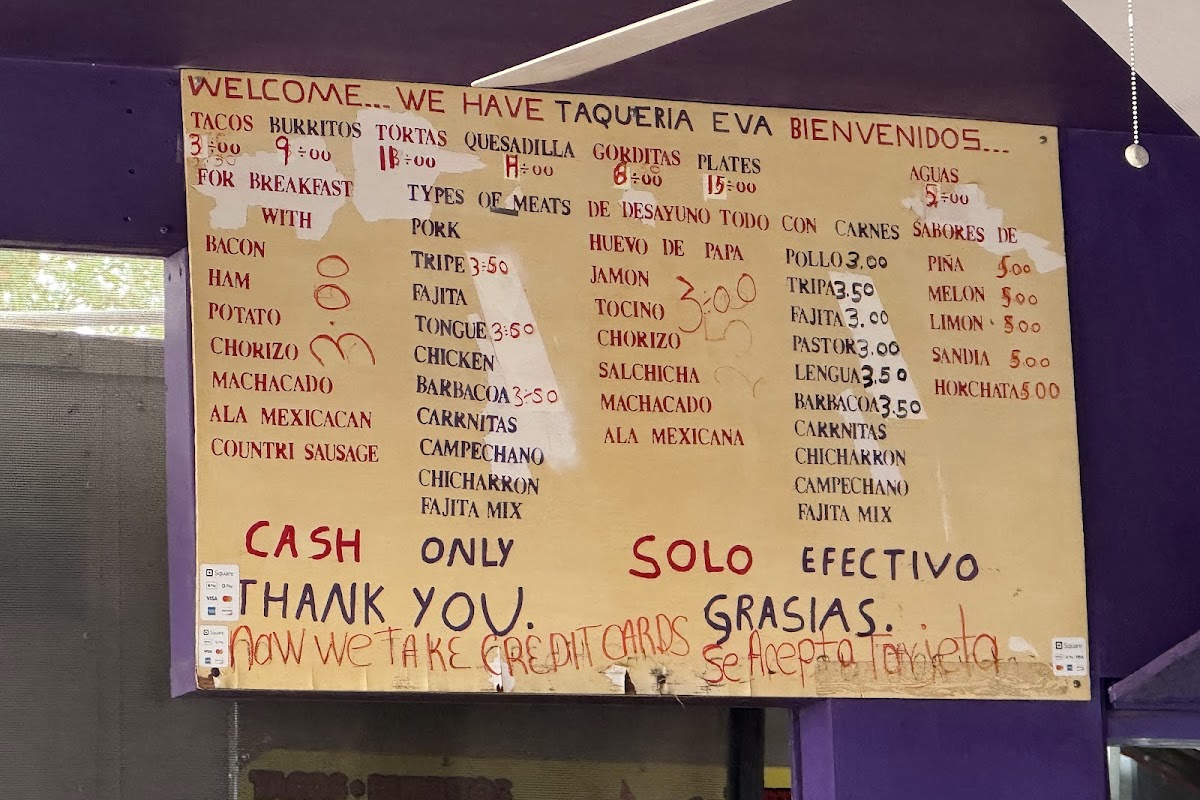 WELCOME... WE HAVE TAQUERIA EVA BIENVENIDOS...
TACOS BURRITOS TORTAS QUESADILLA GORDITAS PLATES AGUAS
3÷00 9÷00 11÷00 11÷00 6÷00 15÷00 5÷00
FOR BREAKFAST
WITH
BACON
HAM
POTATO
CHORIZO
MACHACADO
ALA MEXICACAN
COUNTRI SAUSAGE
3.00
TYPES OF MEATS
PORK
TRIPE 3:50
FAJITA
TONGUE 3:50
CHICKEN
BARBACOA 3-50
CARRNITAS
CAMPECHANO
CHICHARRON
FAJITA MIX
DE DESAYUNO TODO CON CARNES
HUEVO DE PAPA
JAMON
TOCINO
CHORIZO
SALCHICHA
MACHACADO
ALA MEXICANA
3:00
POLLO 3.00
TRIPA 3.50
FAJITA 3.00
PASTOR 3.00
LENGUA 3.50
BARBACOA 3.50
CARRNITAS
CHICHARRON
CAMPECHANO
FAJITA MIX
SABORES DE
PIÑA 5.00
MELON 5.00
LIMON 5.00
SANDIA 5.00
HORCHATA 5.00
CASH ONLY SOLO EFECTIVO
THANK YOU. GRASIAS.
NOW WE TAKE CREDIT CARDS Se Acepta Tarjeta
Square
VISA
Square
Square